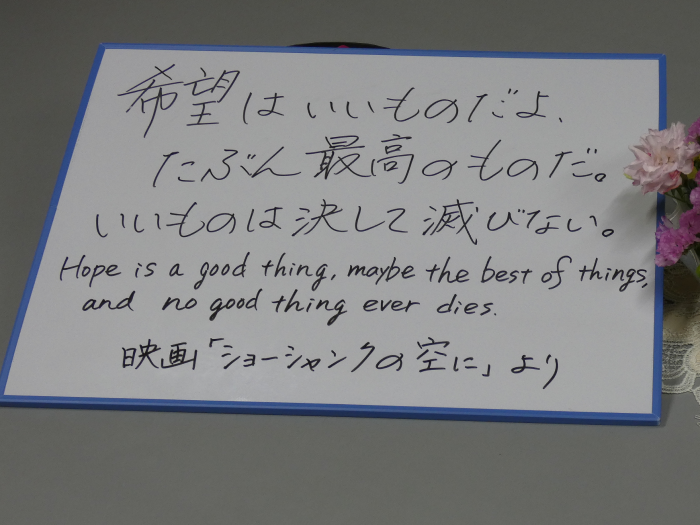 希望はいいものだよ、
たぶん最高のものだ。
いいものは決して滅びない。
Hope is a good thing, maybe the best of things,
and no good thing ever dies.
映画「ショーシャンクの空に」より